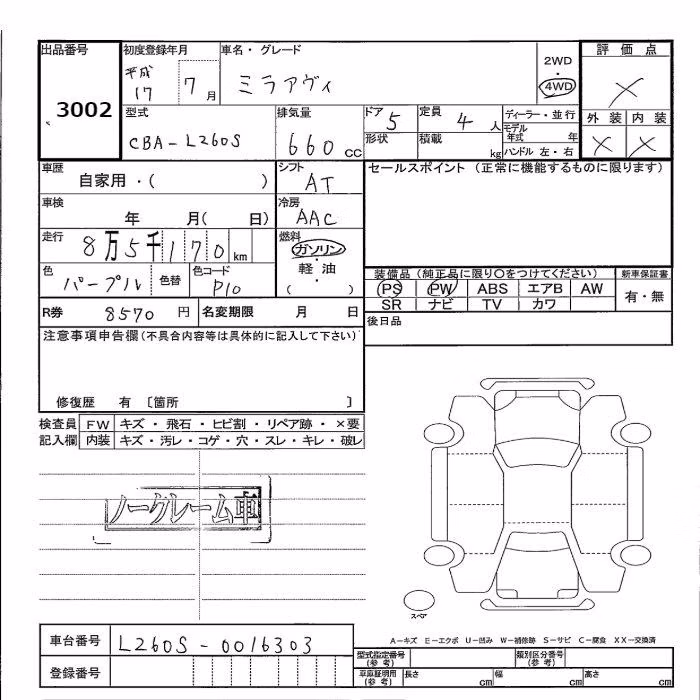 出品番号
3002
初度登録年月
平成
17 7月
車名・グレード
ミラアヴィ
2WD
・
4WD
評価点
×
外装 内装
× ×
型式
CBA-L260S
排気量
660 cc
ドア 5
形状
定員 4 人
積載 kg
ディーラー・並行
モデル年式 年
ハンドル 左・右
車歴
自家用・( )
シフト
AT
セールスポイント (正常に機能するものに限ります)
車検
年 月( 日)
冷房
AAC
走行
8万5千170km
燃料
ガソリン
・
軽油
( )
色
パープル
色替
色コード
P10
装備品(純正品に限り○をつけてください)
PS PW ABS エアB AW
SR ナビ TV カワ
新車保証書
有・無
R券 8570 円
名変期限 月 日
後日品
注意事項申告欄(不具合内容等は具体的に記入して下さい)
修復歴 有 〔箇所 〕
検査員記入欄
FW キズ・飛石・ヒビ割・リペア跡・×要
内装 キズ・汚レ・コゲ・穴・スレ・キレ・破レ
ノークレーム車
スペア
A-キズ E-エクボ U-凹み W-補修跡 S-サビ C-腐食 XX-交換済
車台番号 L260S-0016303
登録番号
型式指定番号(参考)
類別区分番号(参考)
車庫証明用(参考) 長さ cm 幅 cm 高さ cm